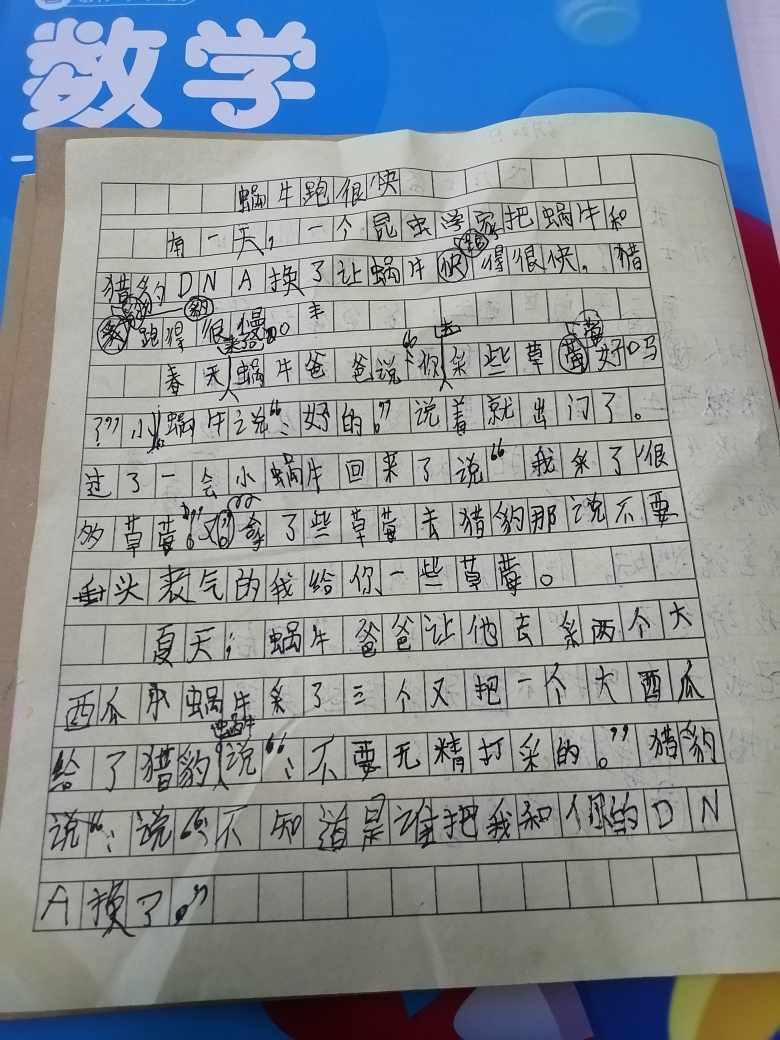 数学
蜗牛跑很快
有一天，一个昆虫学家把蜗牛和
猎豹DNA换了让蜗牛跑得很快，猎
豹跑得很慢。
春天来了蜗牛爸爸说“你去采些草莓好吗
？”小蜗牛说“：好的。”说着就出门了。
过了一会小蜗牛回来了说“我采了很
多草莓。”又拿了些草莓去猎豹那说不要
垂头丧气的我给你一些草莓。
夏天，蜗牛爸爸让他去采两个大
西瓜小蜗牛采了三个又把一个大西瓜
给了猎豹蜗牛说“：不要无精打采的。”猎豹
说“：说“不知道是谁把我和你的DN
A换了。”